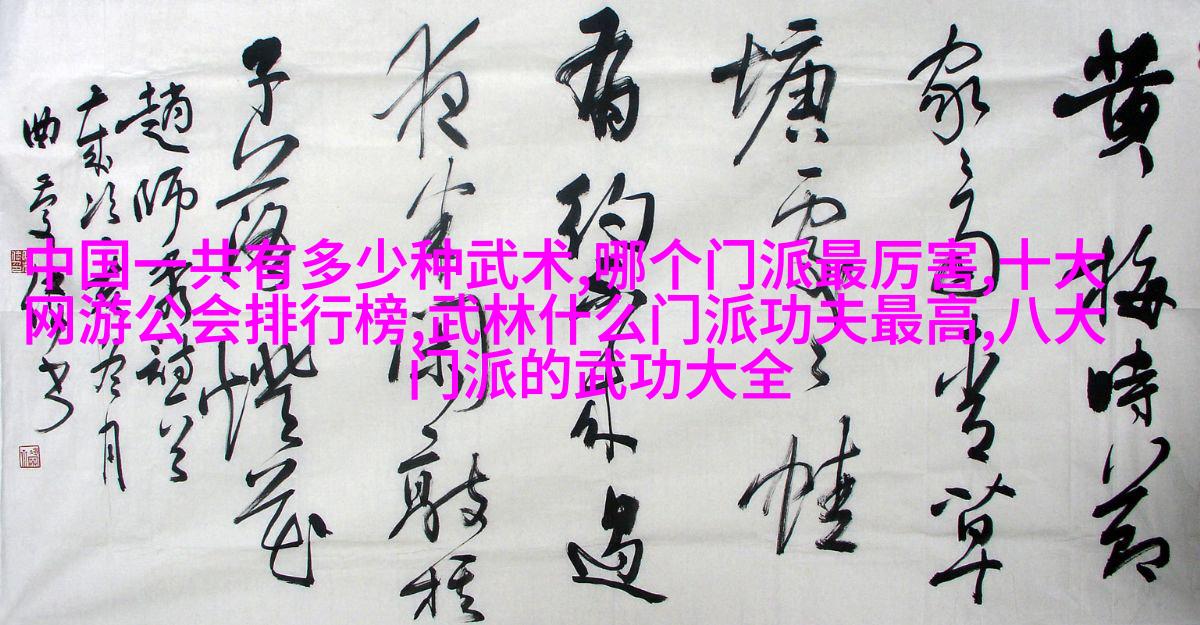 中国一共有多少种武术,哪个门派最厉害,十大
网游公会排行榜,武林什么门派功夫最高,八大
门派的武功大全
黄梅時節
家々雨青草
塘處々蛙
有約不来過
夜半闲敲棋
子落燈花
趙師秀
月
曲書